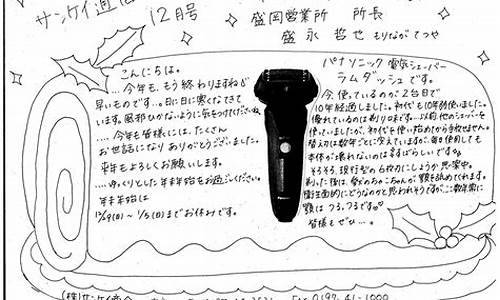 サンケイ通信
12月号
盛岡営業所 所長
盛永 哲也 もりなが てつや
こんにちは。
…今年も、もう終わりますね♪
早いものです。日に日に寒くなてきて
います。風邪ひかないように気をつけてくださいね。
…今年も皆様には、たくさん
お世話になり ありがとうございました。
来年もよろしくお願いします。
…ゆっくりとした年末年始をお過ごしください。
年末年始は
12/29(日)～1/5(日)までお休みです。
パナソニック 電気シェーバー
ラムダッシュです。
今、使っているのが2台目で
10年経過しました。初代も10年弱使いました。
優れているのは剃り味です…以前他のシェーバーを
使っていましたが、初代を使い始めてから手放せません。
替刃は数年ごとに交えていますが、毎日使用しても
本体が壊れないのはすばらしいです。
そろそろ、現行型の6枚刃にしようか思案中。
剃った後は、愛犬のちゃこちゃんが顎を舐めてくれます。
衛生面的にどうなのかと思われそうですが、ここ数年常に
顎はつるつるです♡
皆様もぜひ…。
(株)サンケイ商会
FAX 0197-41-1000